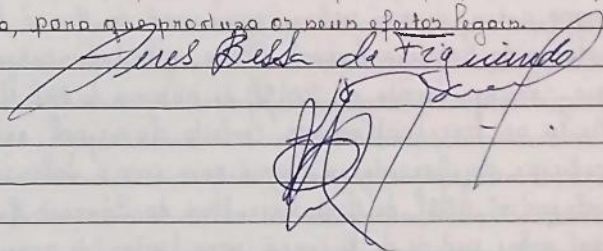 o, para que produza os seus efeitos legais.
Ines Bessa de Figueiredo